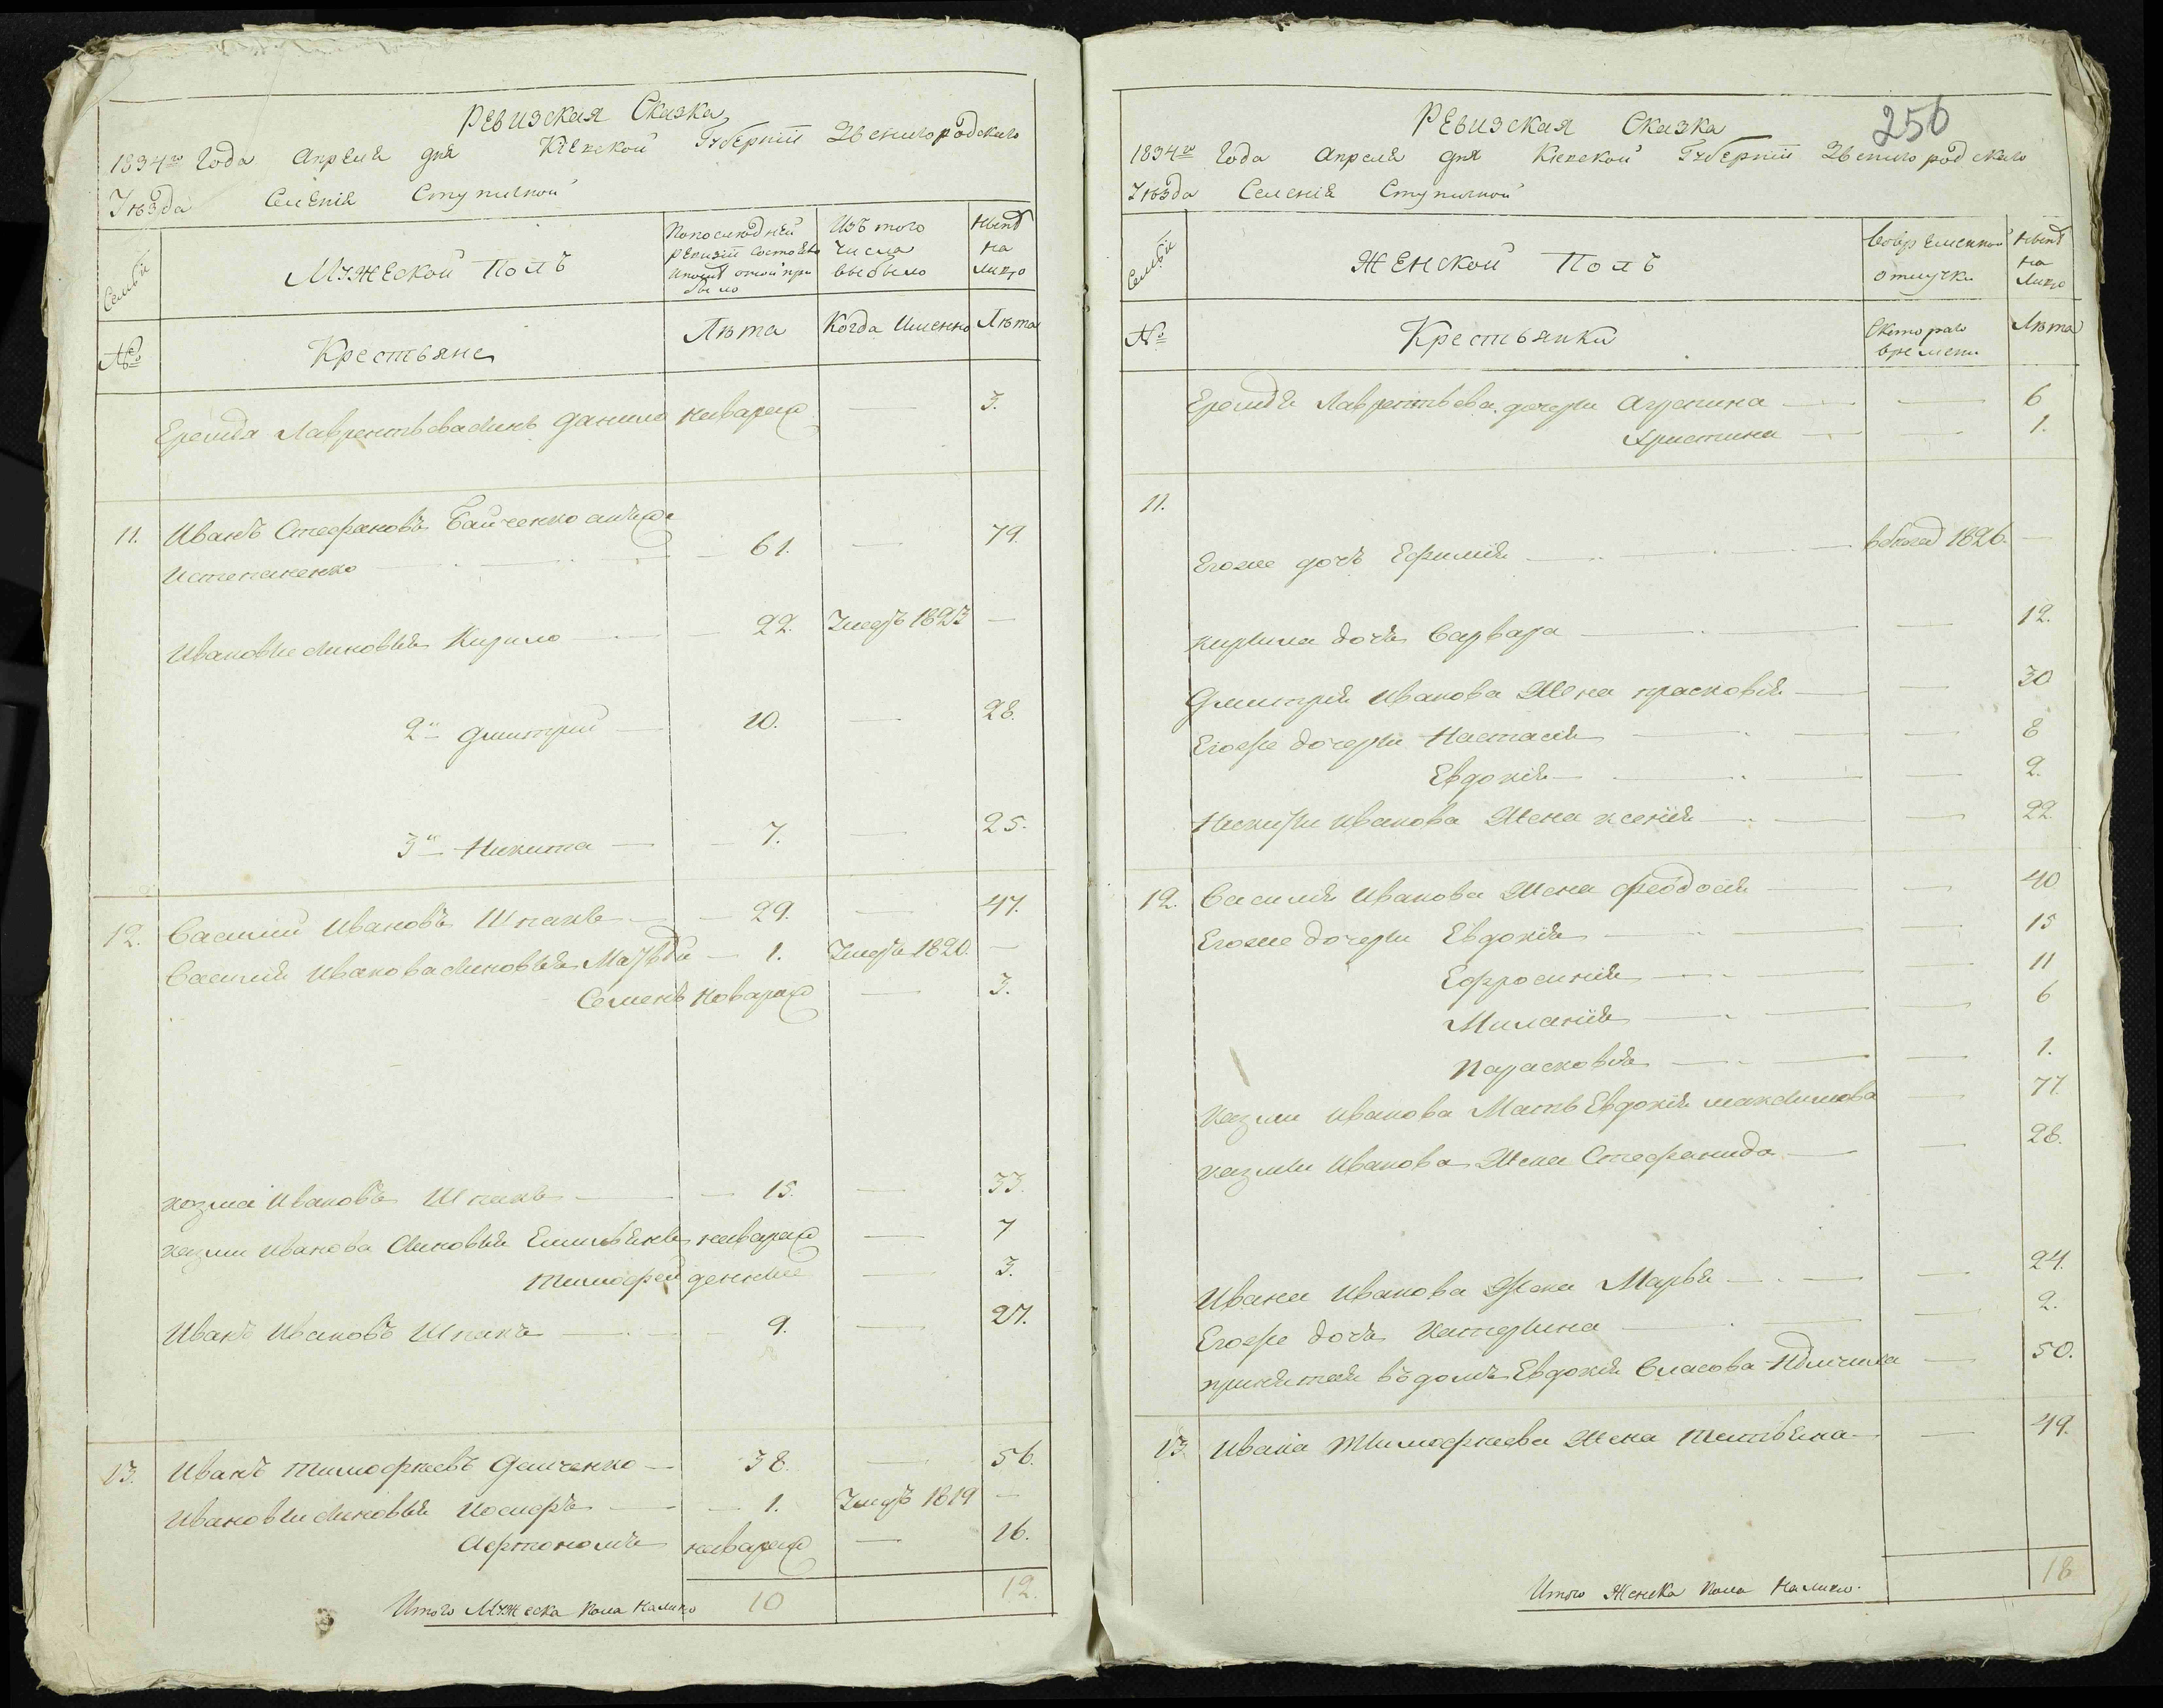 Ревизская Сказка
1834го Года Апреля дня Кіевской Губерніи Звенигородскаго
Уѣзда Селенія Ступичной
Семьи
Мужеской Полъ
Попослѣдней ревизіи состояло ипослѣ оной при было
Изъ того числа выбыло
Нынѣ на лицо
№
Крестьяне
Лѣта
Когда Именно
Лѣта
Еремѣя Лаврентьева сынъ Данило новарож — 3.
11. Иванъ Стефановъ Байченко анъже
Истепаненко — 61. — 79.
Ивановы сыновья Кирило — 22. Умеръ 1823 —
2й Дмитрий — 10. — 28.
3й Никита — 7. — 25.
12. Василий Ивановъ Шпакъ — 29. — 47.
Василия Иванова сыновья — 1. Умеръ 1820. —
Семенъ новарож — 3.
Козма Ивановъ Шпакъ — 15. — 33.
Казми Иванова сыновья Емильянъ новарож — 7
Тимофей денные — 3.
Иванъ Ивановъ Шпакъ — 9. — 27.
13. Иванъ Тимофѣевъ Демченко — 38. — 56.
Ивановы сыновья Иосифъ — 1. Умеръ 1819 —
Афтономъ новарож — 16.
Итого Мужеска пола налицо 10 12.
256
Ревизская Сказка
1834го Года Апреля дня Кіевской Губерніи Звенигородскаго
Уѣзда Селенія Ступичной
Семьи
Женской Полъ
Вовременной отлучки
Нынѣ на Лицо
№
Крестьянки
Скотораго времени
Лѣта
Еремѣя Лаврентьева дочери Агрепина — — 6
Христина — — 1.
11.
Егоже дочь Ефимия — 1826. —
Кирила дочь Варвара — — 12.
Дмитрия Иванова Жена прасковія — — 30
Егоже дочери Настасія — — 8
Евдокія — — 2.
Никиты Иванова Жена ксенія — — 22
12. Василия Иванова Жена феодосія — — 40
Егоже дочери Евдокія — — 15
Ефросинія — — 11
Миланія — — 6
Парасковія — — 1.
Казми Иванова Мать Евдокія максимова — 77.
Казми Иванова Жена Стефанида — — 28.
Ивана Иванова Жена Марья — — 24.
Егоже дочь Катерина — — 2.
принятая въ домъ Евдокія Власова — 50.
13. Ивана Тимофѣева Жена Татьяна — — 49.
Итого Женска пола налицо. 18